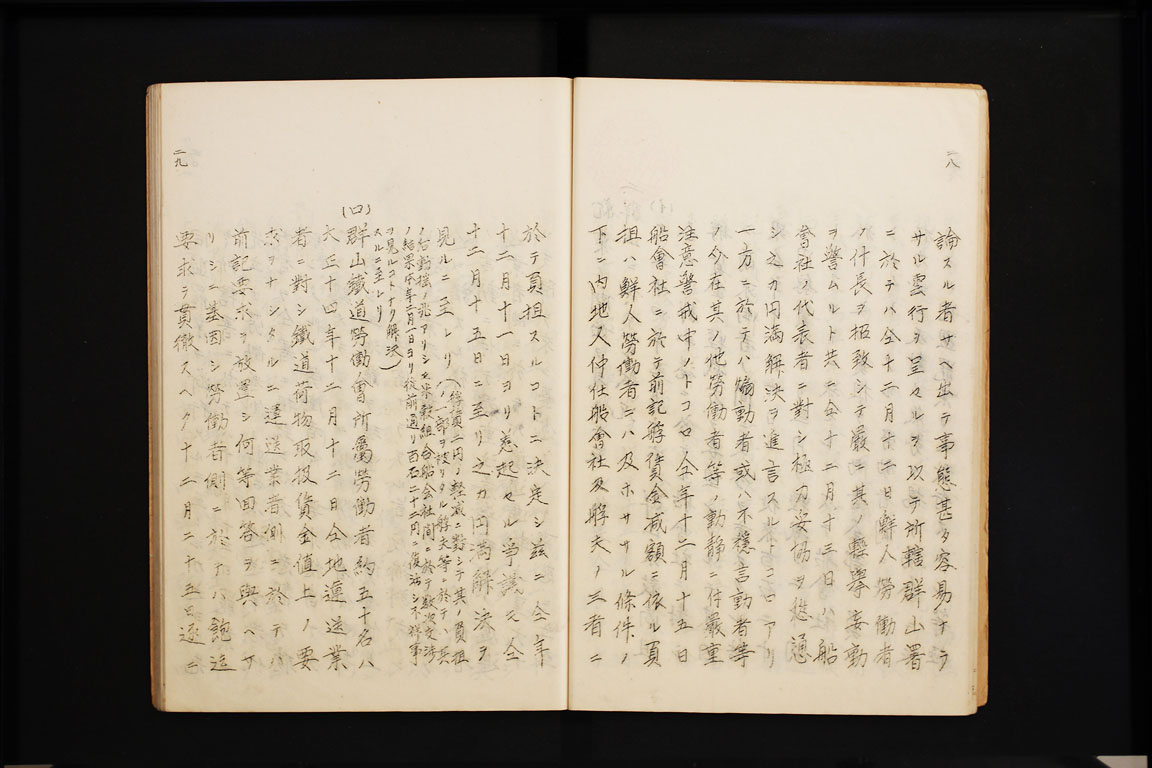 二八
論スル者サヘ出テ事態甚タ容易ナラ
サル雲行ヲ呈々ルヲ以テ所轄群山署
ニ於テハ仝十二月十二日鮮人労働者
ノ什長ヲ招致シテ厳ニ其ノ輕擧妄動
ヲ警ムルト共ニ仝十二月十三日ハ船
會社ノ代表者ニ對シ極力妥協ヲ慫通
シ之カ円満解決ヲ進言スルトコロアリ
一方ニ於テハ煽動者或ハ不穏言動者等
ノ今在其ノ他労働者等ノ動静ニ付嚴重
注意警戒中ノトコロ仝年十二月十五日
船會社ニ於テ前記艀賃金減額ニ依ル頁
担ハ鮮人労働者ニハ及ホササル條件ノ
下ニ内地人仲仕船會社及艀夫ノ三者ニ
二九
於テ頁担スルコトニ決定シ茲ニ仝年
十二月十一日ヨリ惹起々ル争議モ仝
十二月十五日ニ至リ之カ円満解決ヲ
見ルニ至レリ(艀賃二円ノ軽減ニ對シテ其ノ頁担
ノ一部ヲ被リタル艀夫等ニ於テハ其
ノ后動搖ノ兆アリシモ米穀組合船会社間ニ於テ数次交渉
ノ結果本年二月一日ヨリ従前通リ百石二十二円ニ復活シ不祥事
ヲ見ルコトナク解決)
スルニ至レリ
(四)
群山鐵道勞働會所屬勞働者約五十名ハ
大正十四年十二月十二日仝地運送業
者ニ對シ鐵道荷物取扱賃金値上ノ要
求ヲナシタルニ運送業者側ニ於テハ
前記要求ヲ放置シ何等回答ヲ與ヘサ
リシニ基因シ勞働者側ニ於テハ飽迄
要求ヲ貫徹スヘク十二月二十五日遂ニ